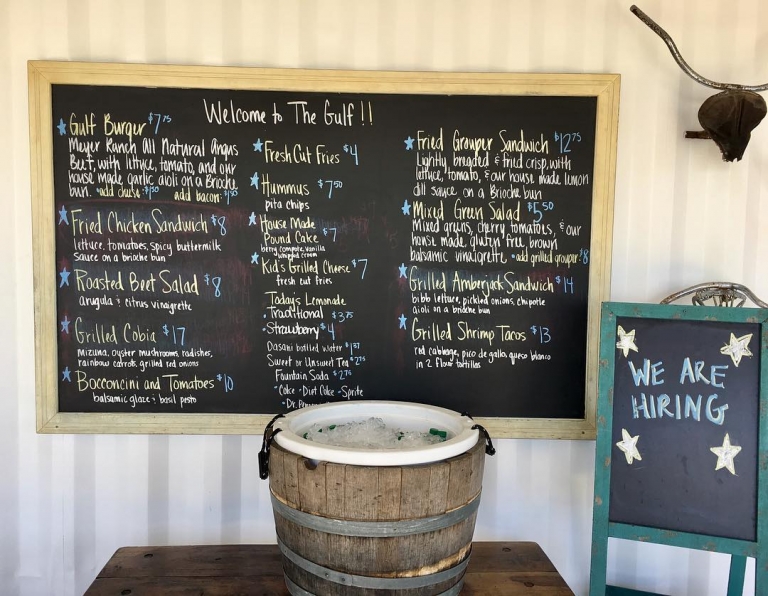 Welcome to The Gulf!!
Gulf Burger $7.75
Meyer Ranch All Natural Angus
Beef, with lettuce, tomato, and our
house made garlic aioli on a Brioche
bun. *add cheese: $1.50 add bacon: $1.50
Fried Chicken Sandwich $8
lettuce, tomatoes, spicy buttermilk
sauce on a brioche bun
Roasted Beet Salad $8
arugula & citrus vinaigrette
Grilled Cobia $17
mizuna, oyster mushrooms, radishes,
rainbow carrots, grilled red onions
Bocconcini and Tomatoes $10
balsamic glaze & basil pesto
Fresh Cut Fries $4
Hummus $7.50
pita chips
House Made
Pound Cake $7
berry compote, vanilla
whipped cream
Kid's Grilled Cheese $7
fresh cut fries
Todays Lemonade
• Traditional $3.75
• Strawberry $4
Dasani bottled water $1.37
Sweet or Unsweet Tea $2.75
Fountain Soda $2.75
• Coke • Diet Coke • Sprite
• Dr.
Fried Grouper Sandwich $12.75
Lightly breaded & fried crisp, with
lettuce, tomato, & our house made lemon
dill sauce on a Brioche bun
Mixed Green Salad $5.50
Mixed greens, cherry tomatoes, & our
house made, gluten free, brown
balsamic vinaigrette *add grilled grouper $8
Grilled Amberjack Sandwich $14
bibb lettuce, pickled onions, chipotle
aioli on a brioche bun
Grilled Shrimp Tacos $13
red cabbage, pico de gallo, queso blanco
in 2 flour tortillas
WE ARE
HIRING